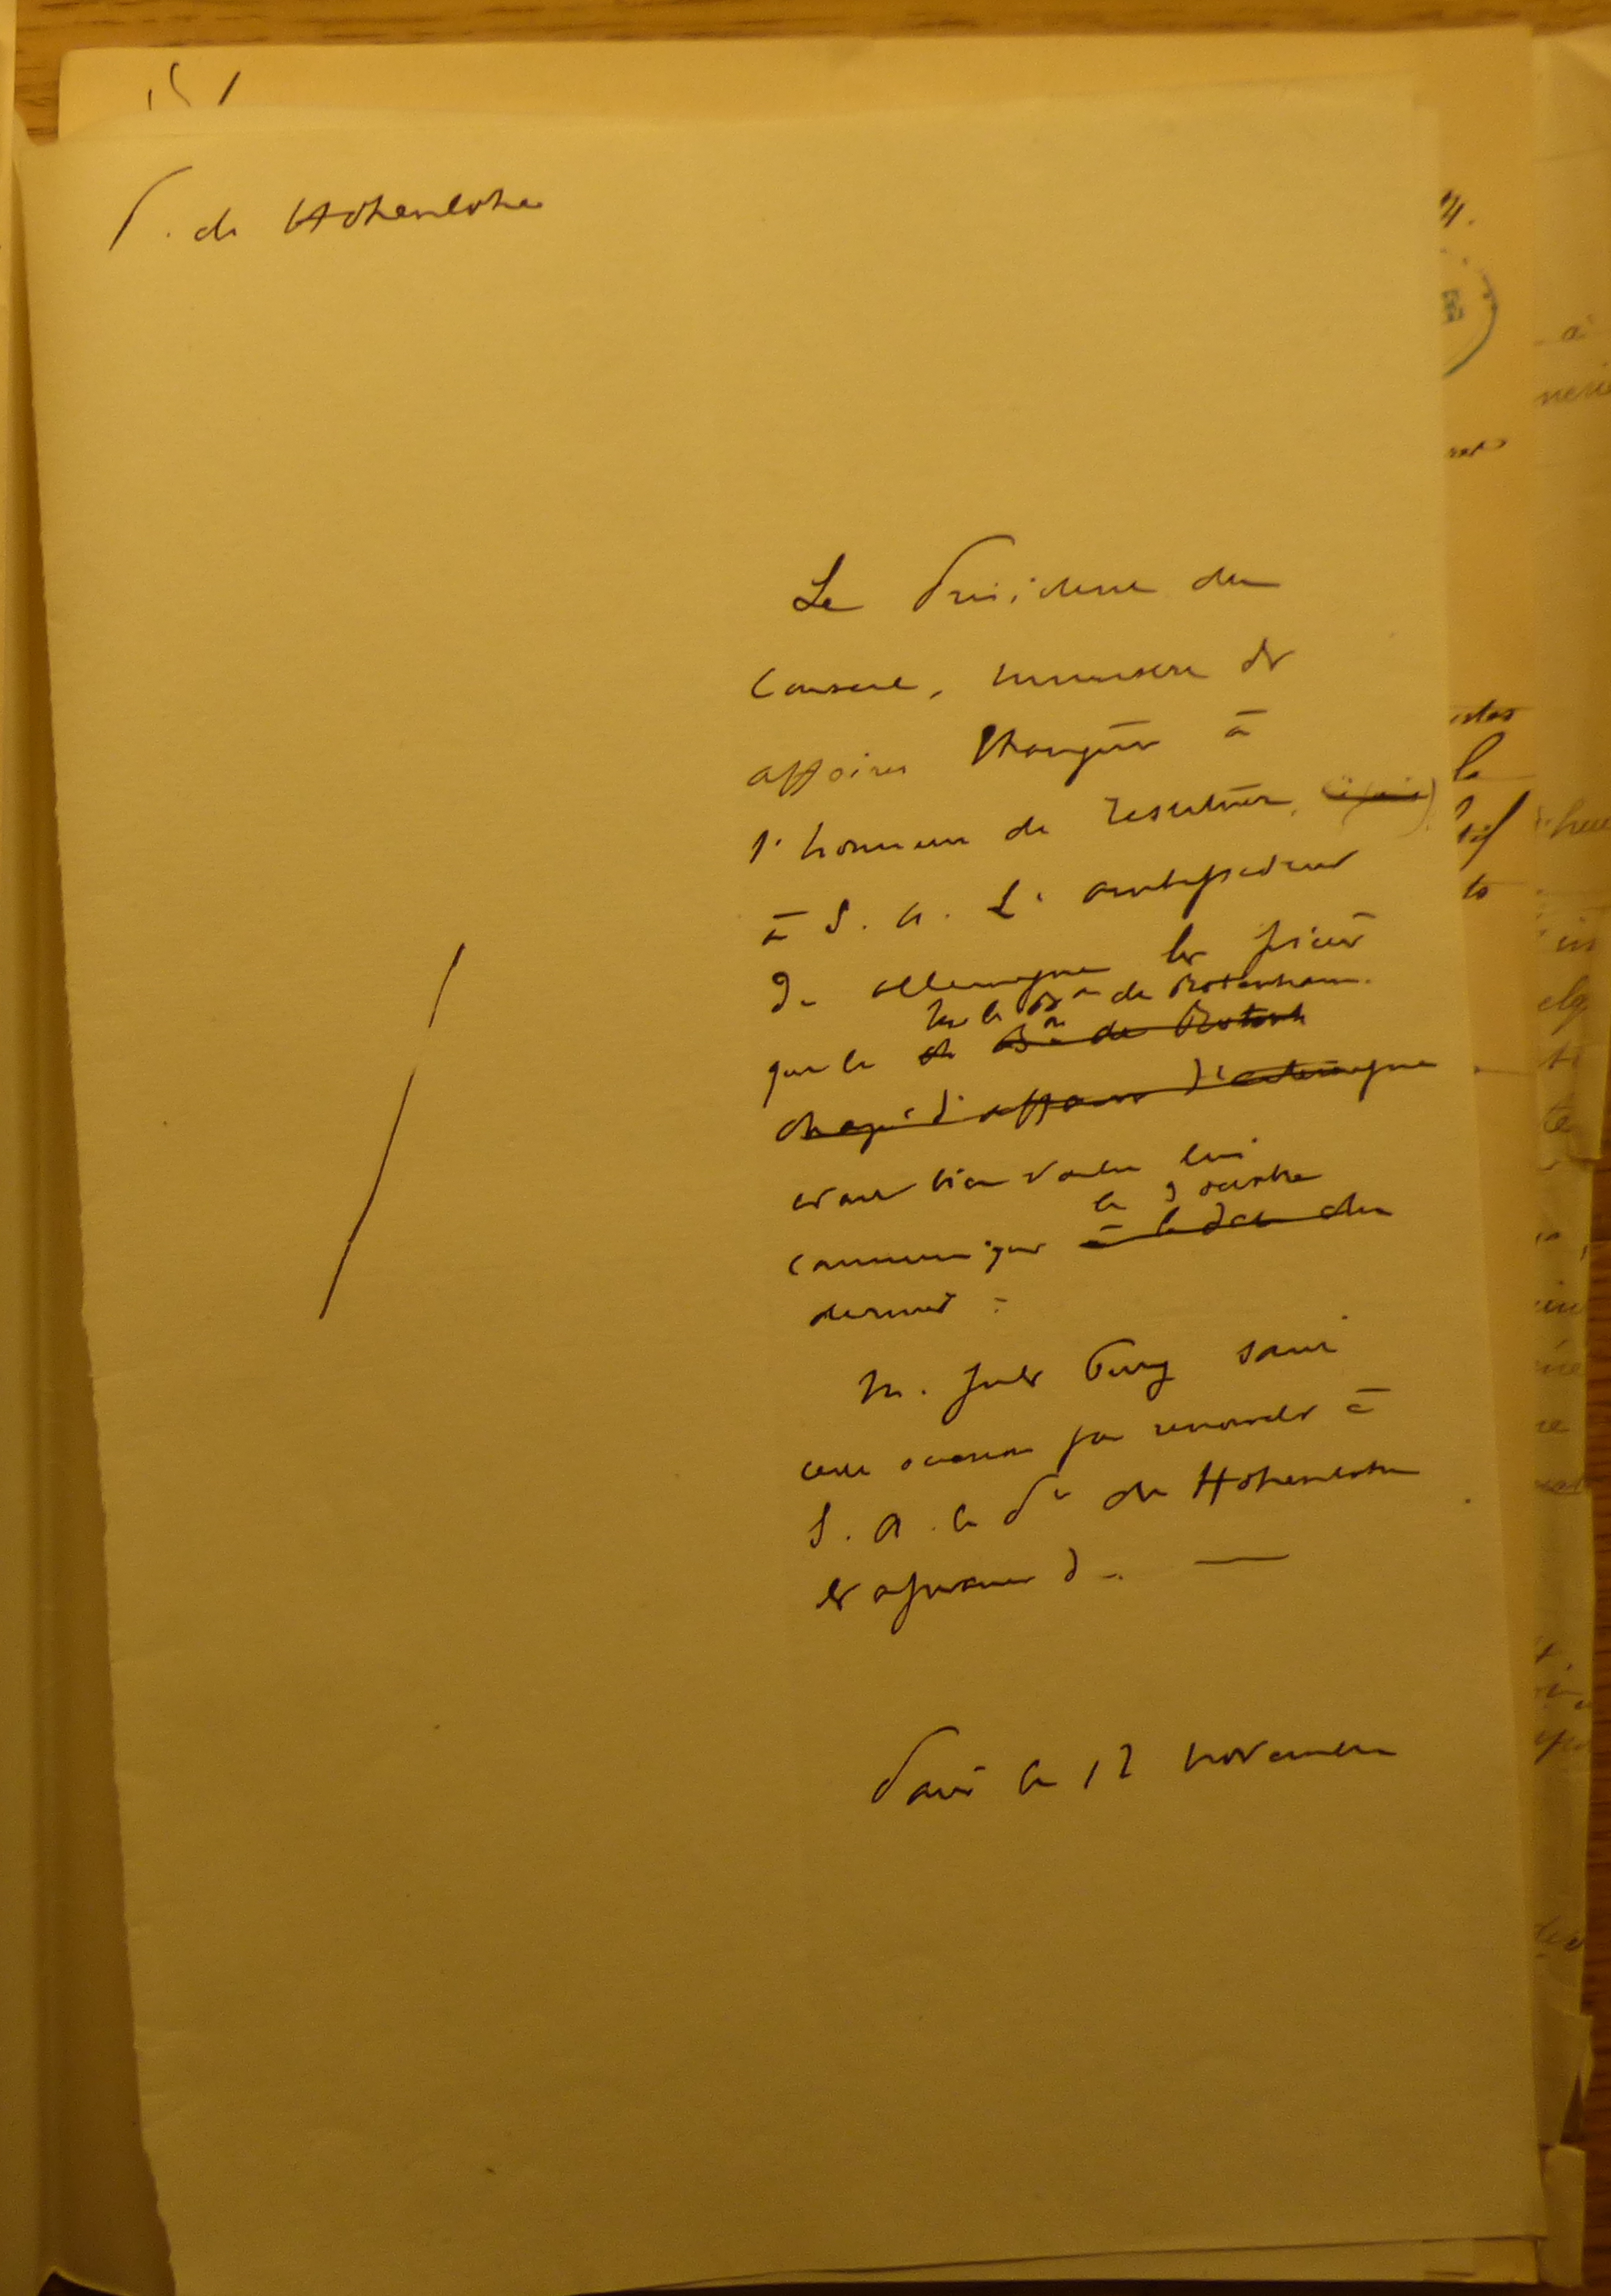 P. de Hohenlohe
Le Président du
Conseil, ministre des
affaires Etrangères a
l'honneur de restituer,
à S. A. L'ambassadeur
d'Allemagne les pièces
M. le Bon de Rotenhan
que le Bon de Rotenh
chargé d'affaires d'Allemagne
avait bien voulu lui
le 9 octobre
communiquer à la date du
dernier.
M. Jules Ferry saisit
cette occasion pour renouveler à
S. A. le Pce de Hohenlohe
les assurances d
Paris le 12 novembre